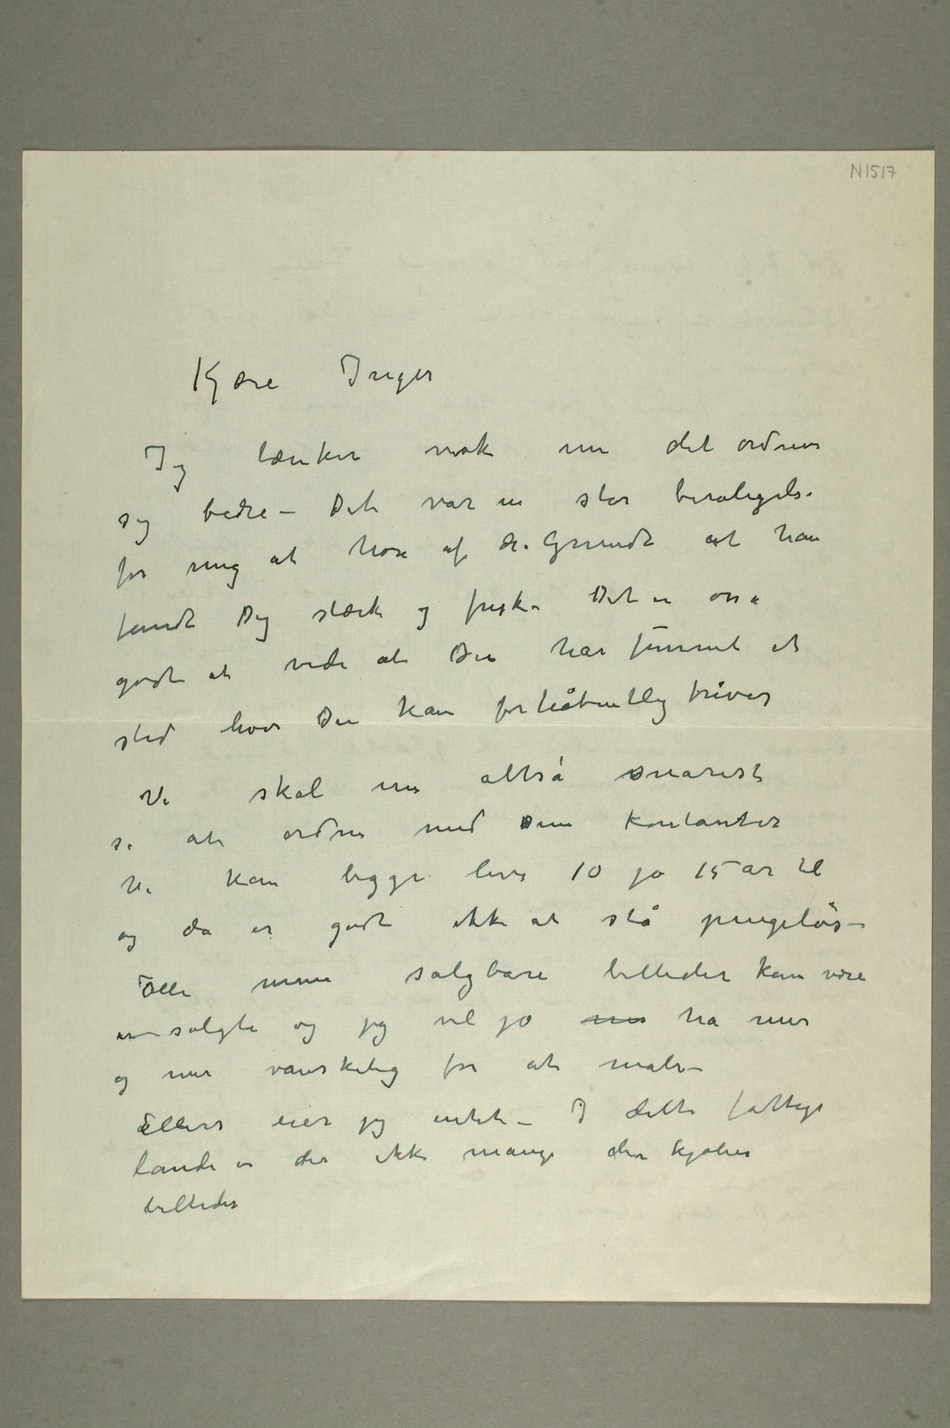 N1517
Kjære Inger
Jeg tænker nok nu det ordner
sig bedre – Det var en stor beroligelse
for mig at høre af dr. Grundt at han
fandt Dig stærk og frisk. Det er osså
godt at vide at Du har funnet et
sted hvor Du kan forhåbentlig trives
Vi skal nu altså snarest
se at ordne med Dine kontanter
Vi kan begge leve 10 ja 15 år til
og da er godt ikke at stå pengeløs –
Alle mine salgbare billeder kan være
er solgte og jeg vil jo mer ha mer
og mer vanskelig for at male –
Ellers eier jeg intet – I dette fattige
lande er der ikke mange der kjøber
billeder